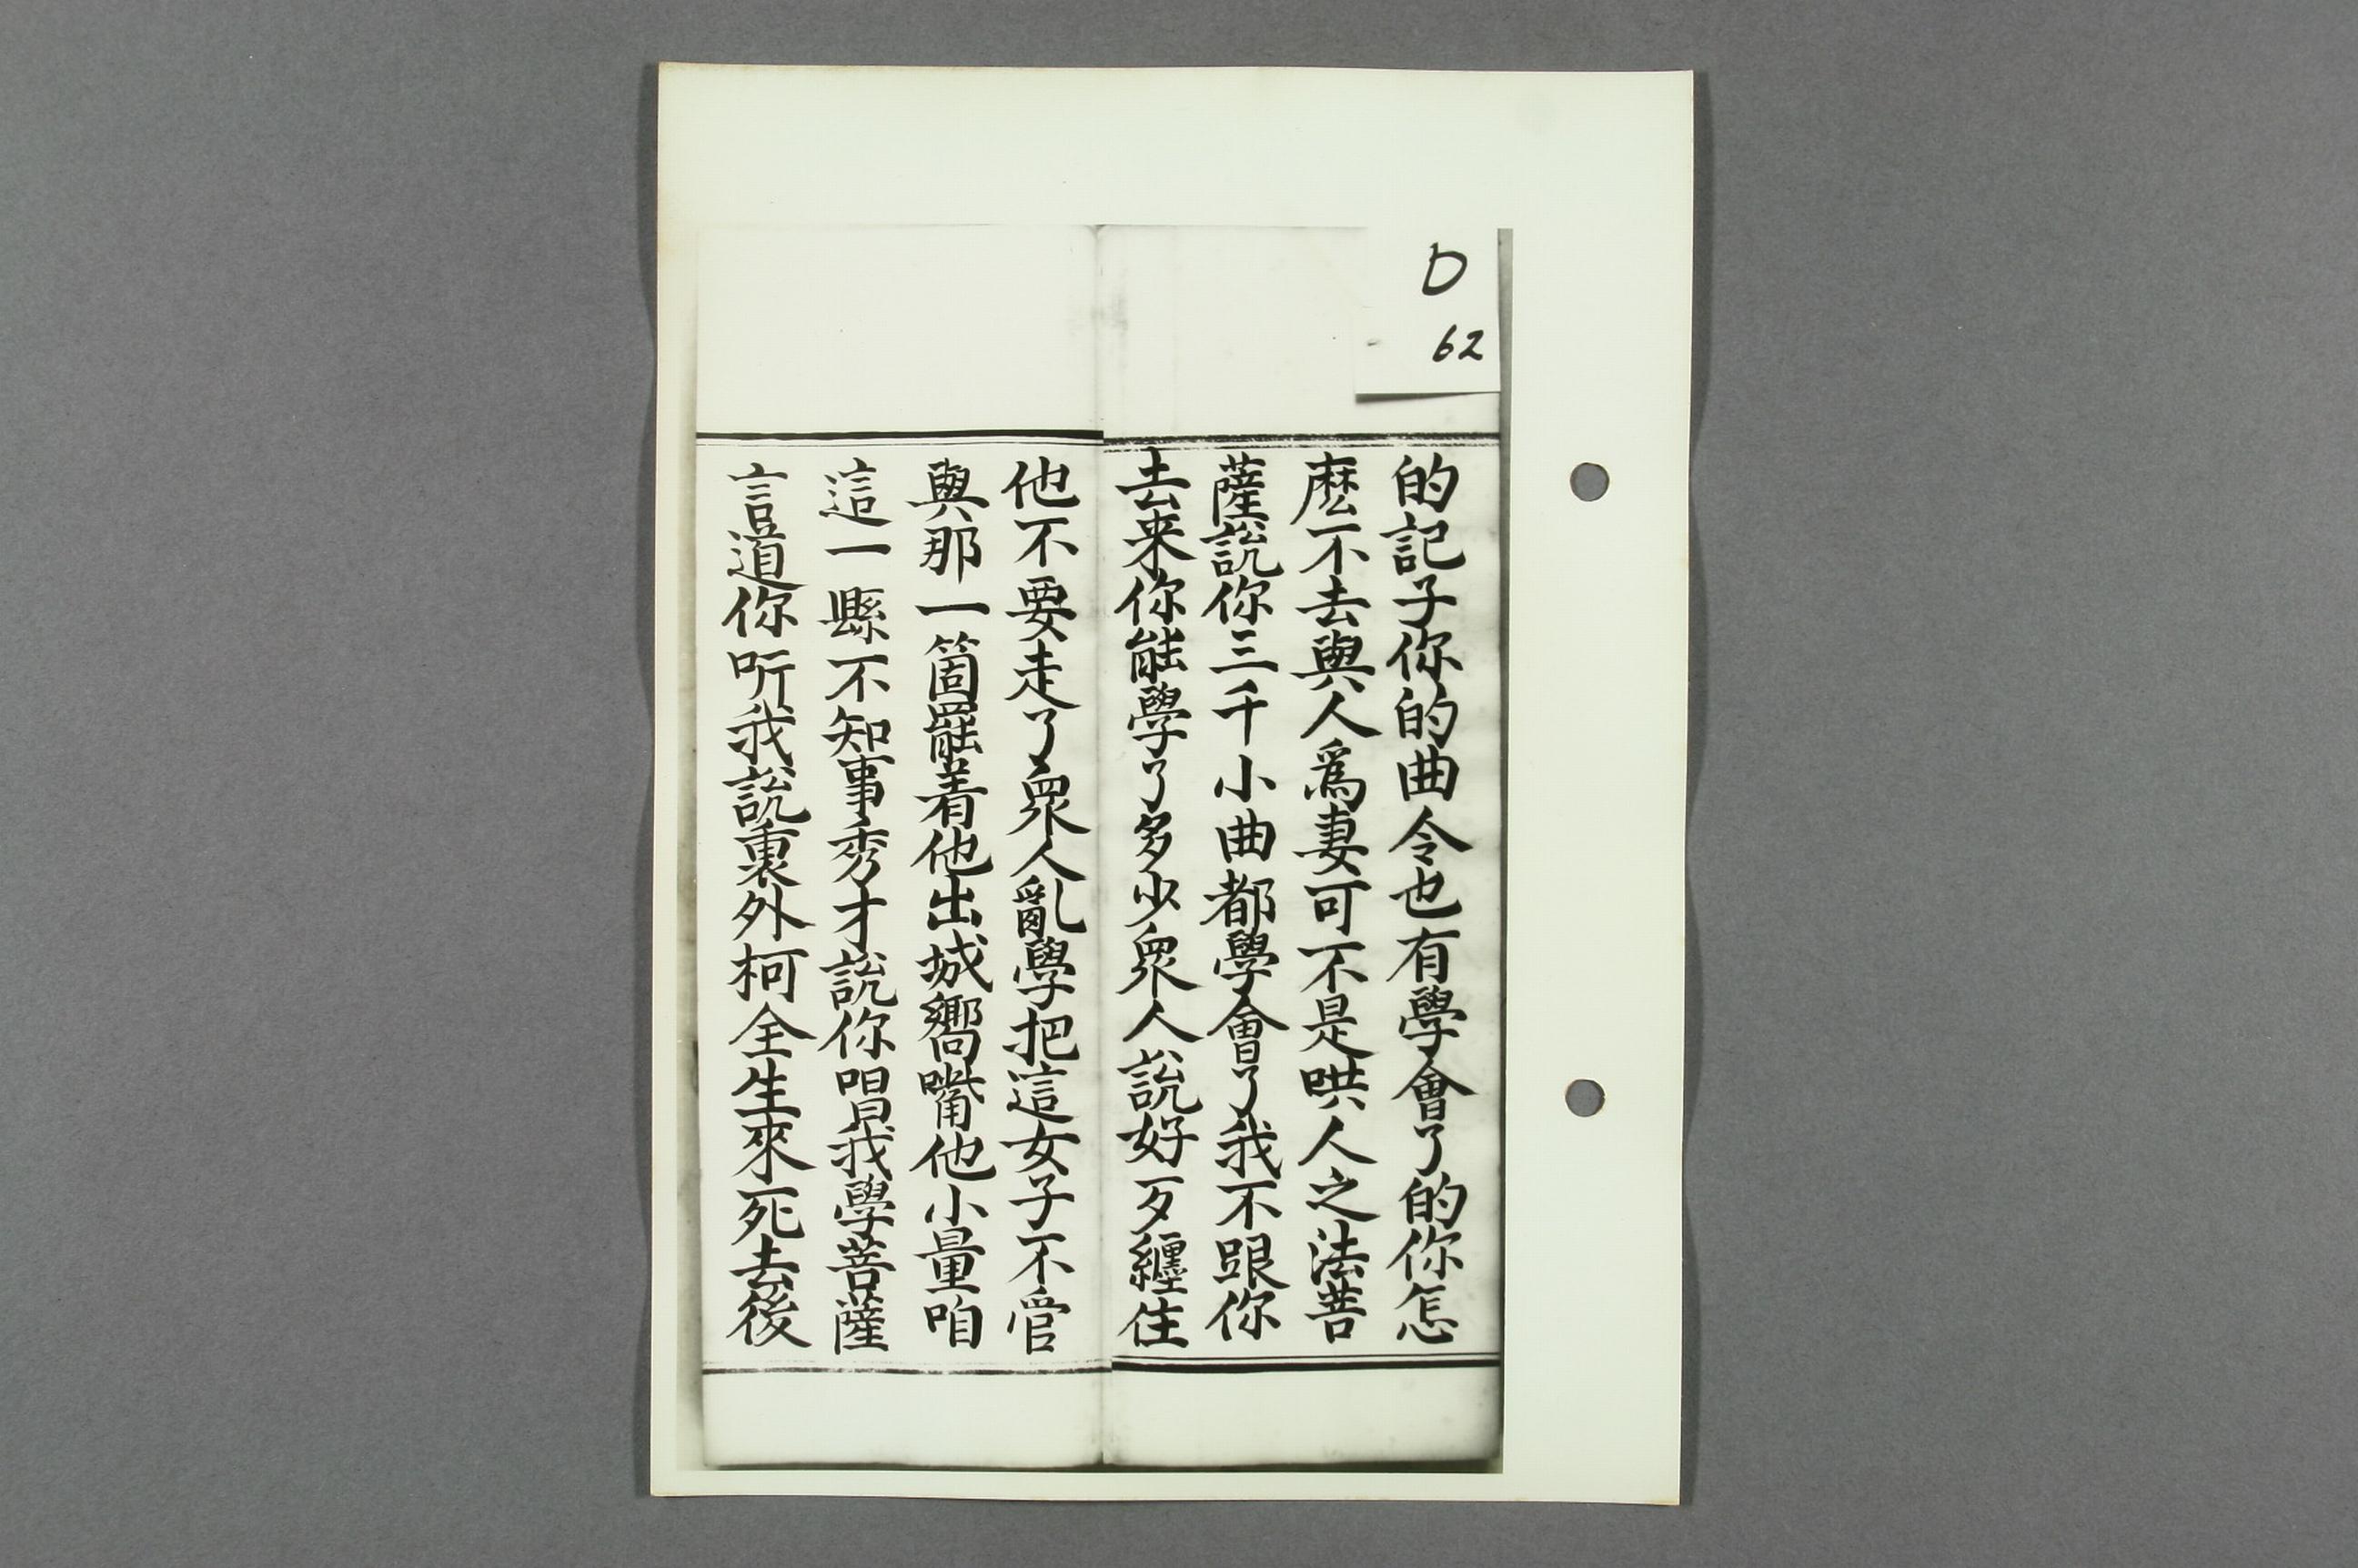 D
62
的記子你的曲令也有學會了的你怎
麽不去與人爲妻可不是哄人之法菩
薩說你三千小曲都學會了我不跟你
去来你能學了多少衆人說好歹纏住
他不要走了衆人亂學把這女子不管
與那一箇罷着他出城嚮嘴他小量咱
這一縣不知事秀才說你唱我學菩薩
言道你听我說裏外柯全生來死去後